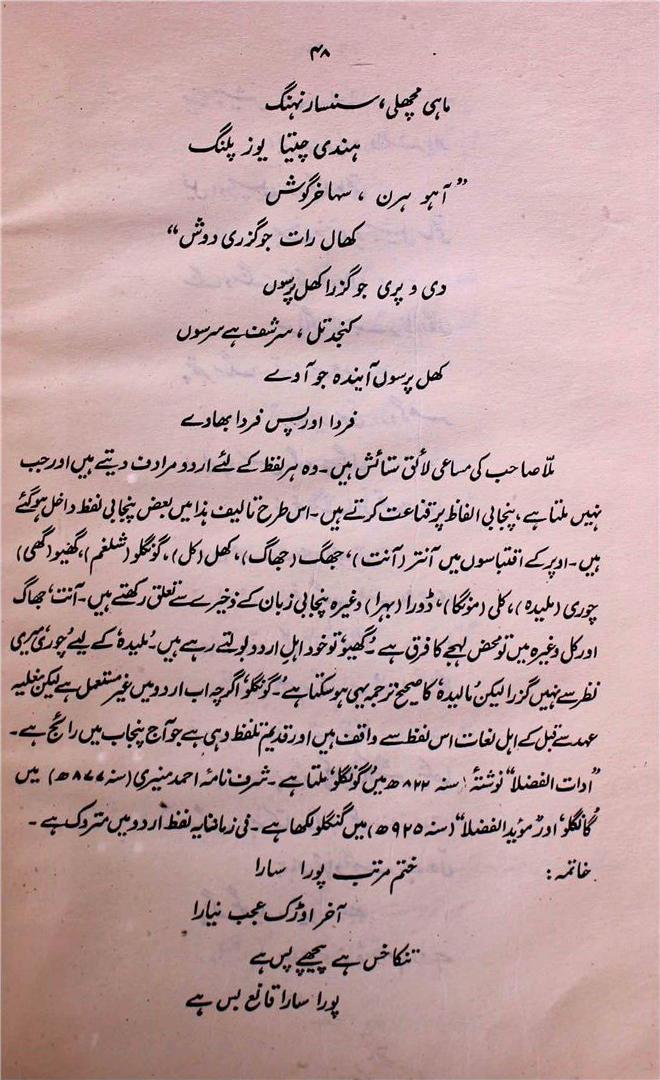 ۴۸
ماہی مچھلی، سنسار نہنگ
ہندی چیتا یوز پلنگ
”آہو ہرن ، سہا خرگوش
کھال رات جو گزری دوش“
دی و پری جو گزرا کھل پرسوں
کنجد تل ، سرشف ہے سرسوں
کھل پرسوں آیندہ جو آوے
فردا اور پس فردا بھاوے
ملّا صاحب کی مساعی لائق ستائش ہیں۔ وہ ہر لفظ کے لئے اردو مرادف دیتے ہیں اور جب
نہیں ملتا ہے، پنجابی الفاظ پر قناعت کرتے ہیں۔ اس طرح تالیف ہذا میں بعض پنجابی لفظ داخل ہو گئے
ہیں۔ اوپر کے اقتباسوں میں آنتر (آنت)، جھگ (جھاگ)، کھل (کل)، گونگلو (شلغم)، گھیو (گھی)
چوری (ملیدہ)، کلی (مونگا)، ڈورا (بہرا) وغیرہ پنجابی زبان کے ذخیرے سے تعلق رکھتے ہیں۔ آنت، جھاگ
اور کل وغیرہ میں تو محض لہجے کا فرق ہے۔ ’گھیو‘ تو خود اہل اردو بولتے رہے ہیں۔ ’ملیدہ‘ کے لیے ’چوری‘ میری
نظر سے نہیں گزرا لیکن ’مالیدہ‘ کا صحیح ترجمہ یہی ہو سکتا ہے۔ ’گونگلو‘ اگرچہ اب اردو میں غیر مستعمل ہے لیکن مغلیہ
عہد سے قبل کے اہل لغات اس لفظ سے واقف ہیں اور قدیم تلفظ وہی ہے جو آج پنجاب میں رائج ہے۔
”ادات الفضلا“ نوشتۂ (سنہ ۸۲۲ھ میں ’گونگلو‘ ملتا ہے۔ شرف نامہ احمد منیری (سنہ ۸۷۷ھ) میں
’گانگلو‘ اور ”مؤید الفضلا“ (سنہ ۹۲۵ھ) میں گنگلو لکھا ہے۔ فی زمانا یہ لفظ اردو میں متروک ہے۔
خاتمہ: ختم مرتب پورا سارا
آخر اوڑک عجب نیارا
تنکا خس ہے پیچھے پس ہے
پورا سارا قانع بس ہے